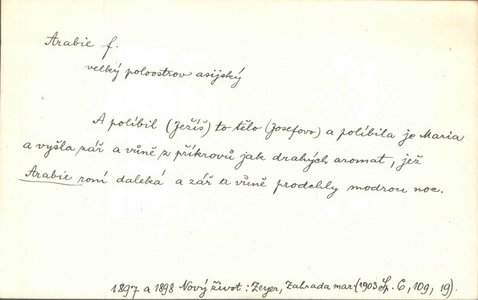 Arabie f.
velký poloostrov asijský
A políbil (Ježíš) to tělo (Josefovo) a políbila jo Maria
a vyšla zář a vůně z příkrovů jak drahých aromat, jež
Arabie roní daleká a zář a vůně prodchly modrou noc.
1897 a 1898 Nový život: Zeyer, Zahrada mar. (1903 Sp. 6, 109, 19).